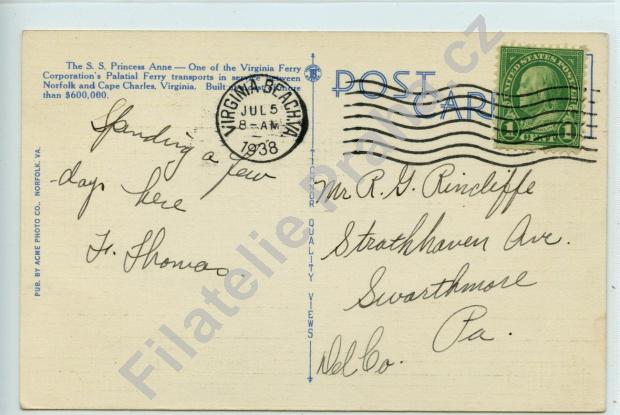 The S. S. Princess Anne — One of the Virginia Ferry
Corporation's Palatial Ferry transports in service between
Norfolk and Cape Charles, Virginia. Built at cost of more
than $600,000.
POST
CARD
VIRGINIA BEACH, VA.
JUL 5
8-AM
1938
UNITED STATES POSTAGE
1 CENT 1
Spending a few
days here
Fr. Thomas.
Mr R. G. Rincliffe
Strathhaven Ave.
Swarthmore
Pa.
Del Co.
PUB. BY ACME PHOTO CO., NORFOLK, VA.
TICHNOR QUALITY VIEWS
Filatelie Praha.cz